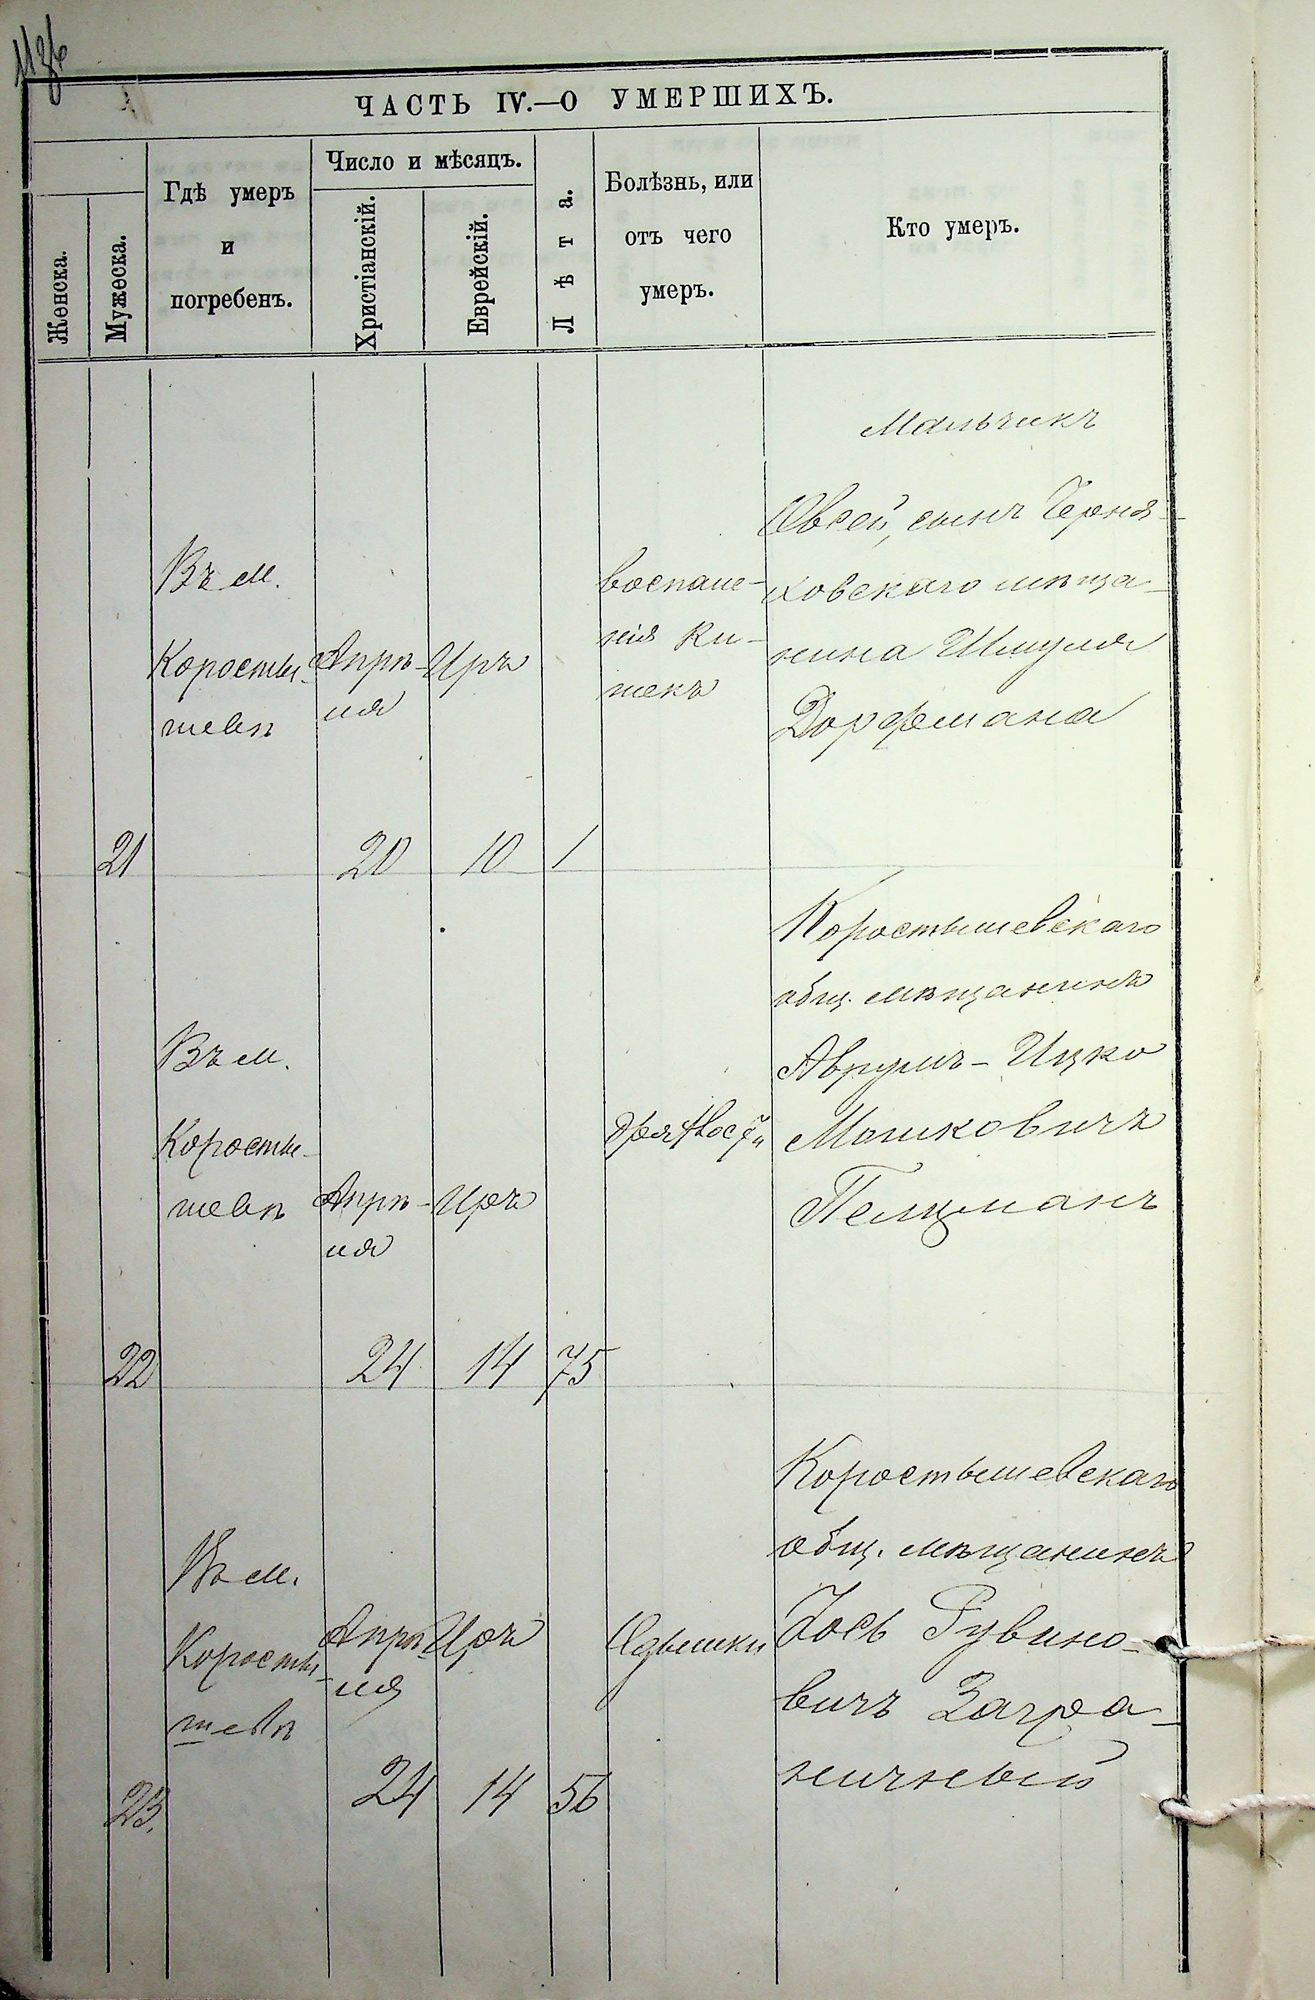 ЧАСТЬ IV.—О УМЕРШИХЪ.
Женска.
Мужеска.
Гдѣ умеръ
и
погребенъ.
Число и мѣсяцъ.
Христіанскій.
Еврейскій.
Лѣта.
Болѣзнь, или
отъ чего
умеръ.
Кто умеръ.
21
Въ м.
Коросты-
шевѣ
Апрѣ-
ля
20
Иръ
10
1
воспале-
нія ки-
шекъ
Мальчикъ
Овсей, сынъ Черня-
ховскаго мѣща-
нина Шмуля
Дорфмана
22
Въ м.
Коросты-
шевѣ
Апрѣ-
ля
24
Иръ
14
75
дряхлости
Коростышевскаго
общ. мѣщанинъ
Аврумъ-Ицко
Мошковичъ
Пелцманъ
23.
Въ м.
Коросты-
шевѣ
Апрѣ-
ля
24
Иръ
14
56
Одышки
Коростышевскаго
общ. мѣщанинъ
Іось Рувино-
вичъ Загра-
ничный